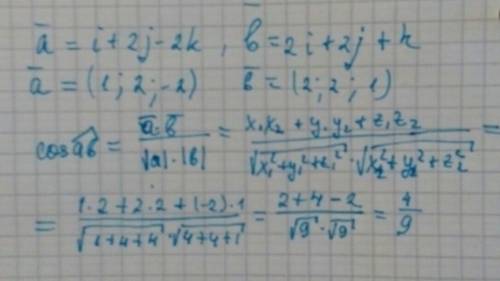 a̅ = i + 2j - 2k , b̅ = 2i + 2j + k
a̅ = (1; 2; -2) b̅ = (2; 2; 1)
cos a͡b = a̅·b̅ / √|a|·|b| = x₁x₂ + y₁y₂ + z₁z₂ / √x₁²+y₁²+z₁² · √x₂²+y₂²+z₂² =
= 1·2 + 2·2 + (-2)·1 / √1+4+4 · √4+4+1 = 2+4-2 / √9 · √9 = 4/9